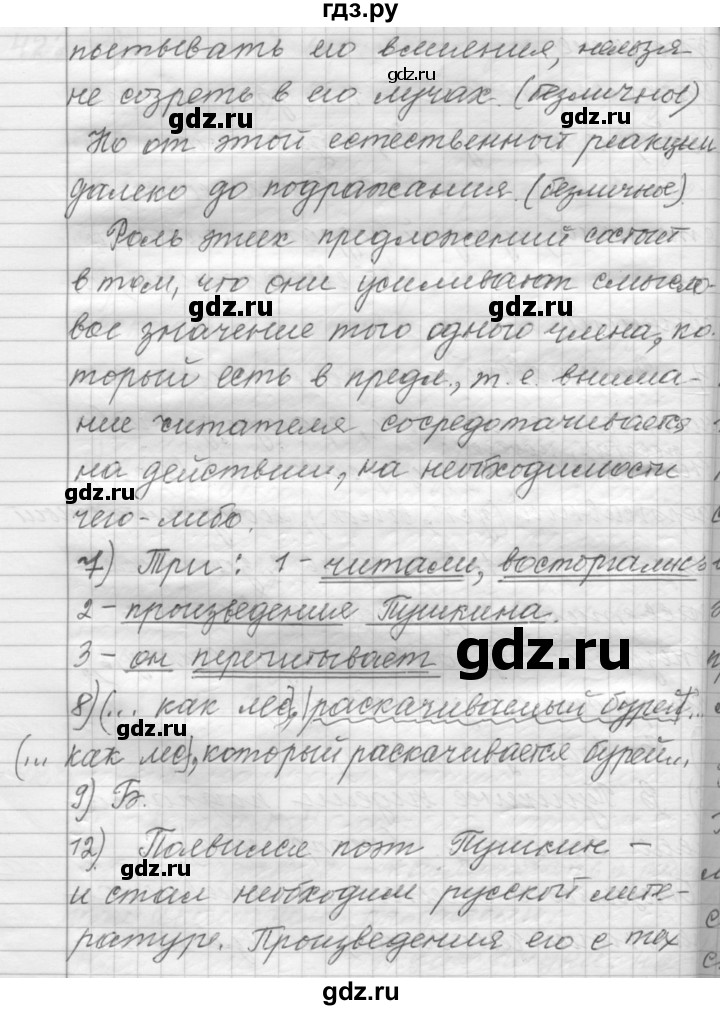 гдз.ру
пытывать его влияния, нельзя
не созреть в его лучах. (безличное)
Но от этой естественной реакции
далеко до подражания. (безличное)
Роль этих предложений состоит
в том, что они усиливают смысло-
вое значение того одного члена, ко-
торый есть в предл., т. е. внима-
ние читателя сосредотачивается
на действии, на необходимости
чего-либо.
7) Три: 1 - читали, восторгались
2 - произведения Пушкина.
3 - он перечитывает
8) (... как лес), |раскачиваемый бурей|...
(... как лес), который раскачивается бурей...
9) Б.
12) Появился поэт Пушкин -
и стал необходим русской лите-
ратуре. Произведения его с тех
gdz.ru
gdz.ru
gdz.ru
gdz.ru
gdz.ru
gdz.ru
gdz.ru
gdz.ru
gdz.ru
gdz.ru
gdz.ru